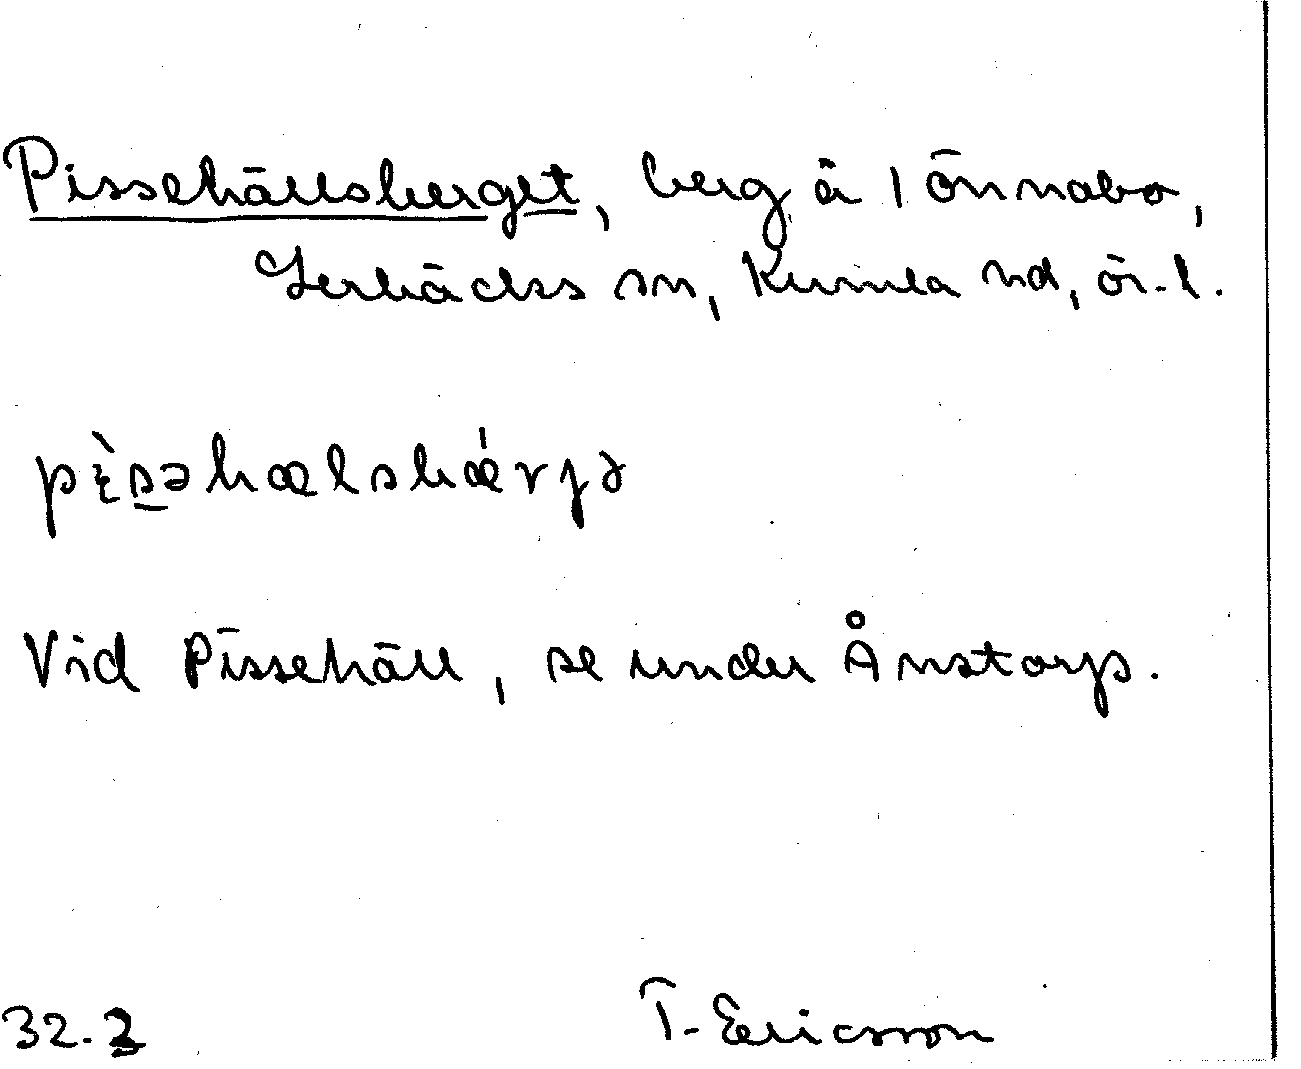 Pissehällsberget, berg å 1 Önnabo,
Lerbäcks sn, Kumla hd, ör. l.
pìsəhælsbǽrjə
Vid Pissehäll, se under Ånstorp.
32.2 T. Ericsson